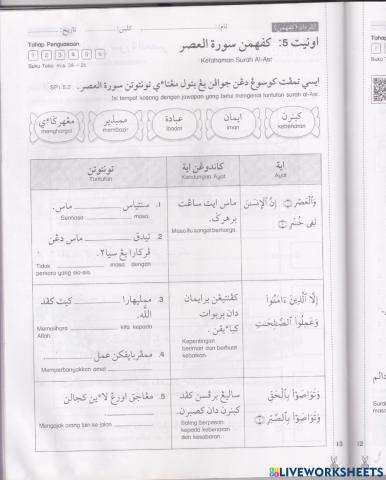 نام:
کلس:
تاريخ:
اونيت 5: کفهمن سورة العصر
Kefahaman Surah Al-Asr
Tahap Penguasaan
1 2 3 4 5 6
Buku Teks: m/s 24 - 26
ايسي تمڤت کوسوڠ دڠن جواڤن يڠ بتول مڠناءي تونتوتن سورة العصر.
SP1.5.2
Isi tempat kosong dengan jawapan yang betul mengenai tuntutan surah al-Asr.
کبنرن
kebenaran
ايمان
iman
عبادة
ibadat
ممبذير
membazir
مڠهرݢاءي
menghargai
اية
Ayat
کاندوڠن اية
Kandungan Ayat
تونتوتن
Tuntutan
وَالْعَصْرِ ۝ إِنَّ الْإِنسَٰنَ
لَفِى خُسْرٍ ۝
ماس ايت ساڠت
برهرݢ.
Masa itu sangat berharga.
1. سنتياس ماس.
Sentiasa masa.
2. تيدق ماس دڠن
ڤرکارا يڠ سيا٢.
Tidak masa dengan
perkara yang sia-sia.
إِلَّا الَّذِينَ ءَامَنُوا
وَعَمِلُوا الصَّٰلِحَٰتِ
کڤنتيڠن برايمان
دان بربوات
کبايقن.
Kepentingan
beriman dan berbuat
kebaikan.
3. ممليهارا کيت کڤد
الله.
Memelihara kita kepada
Allah.
4. ممڤرباڽقکن عمل
Memperbanyakkan amal
وَتَوَاصَوْا بِالْحَقِّ
وَتَوَاصَوْا بِالصَّبْرِ ۝
ساليڠ برڤسن کڤد
کبنرن دان کصبرن.
Saling berpesan
kepada kebenaran
dan kesabaran.
5. مڠاجق اورڠ لاءين کجالن
Mengajak orang lain ke jalan
13
12
LIVEWORKSHEETS